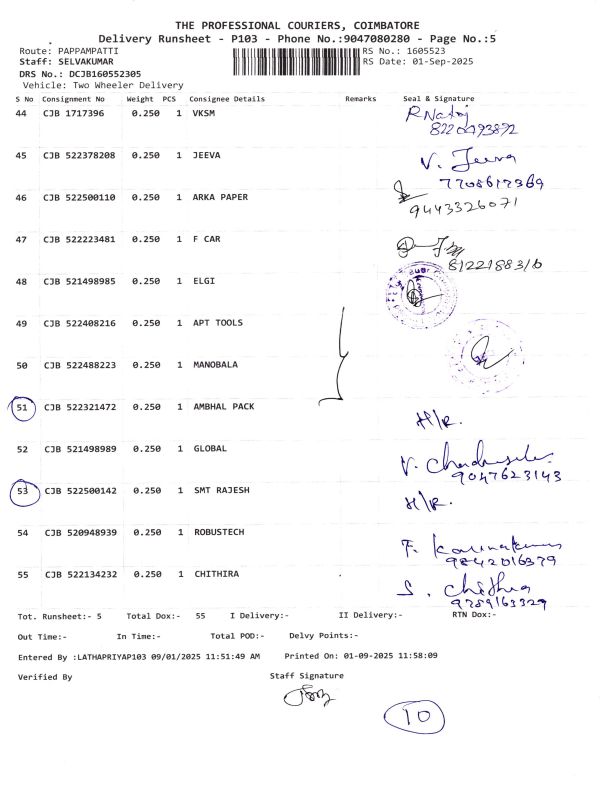 THE PROFESSIONAL COURIERS, COIMBATORE
Delivery Runsheet - P103 - Phone No.:9047080280 - Page No.:5
Route: PAPPAMPATTI RS No.: 1605523
Staff: SELVAKUMAR RS Date: 01-Sep-2025
DRS No.: DCJB160552305
Vehicle: Two Wheeler Delivery
S No Consignment No Weight PCS Consignee Details Remarks Seal & Signature
44 CJB 1717396 0.250 1 VKSM
45 CJB 522378208 0.250 1 JEEVA V. Jeeva
7708617369
46 CJB 522500110 0.250 1 ARKA PAPER
9443326071
47 CJB 522223481 0.250 1 F CAR
48 CJB 521498985 0.250 1 ELGI
49 CJB 522408216 0.250 1 APT TOOLS
50 CJB 522488223 0.250 1 MANOBALA
51 CJB 522321472 0.250 1 AMBHAL PACK H/R.
52 CJB 521498989 0.250 1 GLOBAL
9047623143
53 CJB 522500142 0.250 1 SMT RAJESH H/R.
54 CJB 520948939 0.250 1 ROBUSTECH
9842016379
55 CJB 522134232 0.250 1 CHITHIRA S. Chithra
9789163329
Tot. Runsheet:- 5 Total Dox:- 55 I Delivery:- II Delivery:- RTN Dox:-
Out Time:- In Time:- Total POD:- Delvy Points:-
Entered By :LATHAPRIYAP103 09/01/2025 11:51:49 AM Printed On: 01-09-2025 11:58:09
Verified By Staff Signature
10